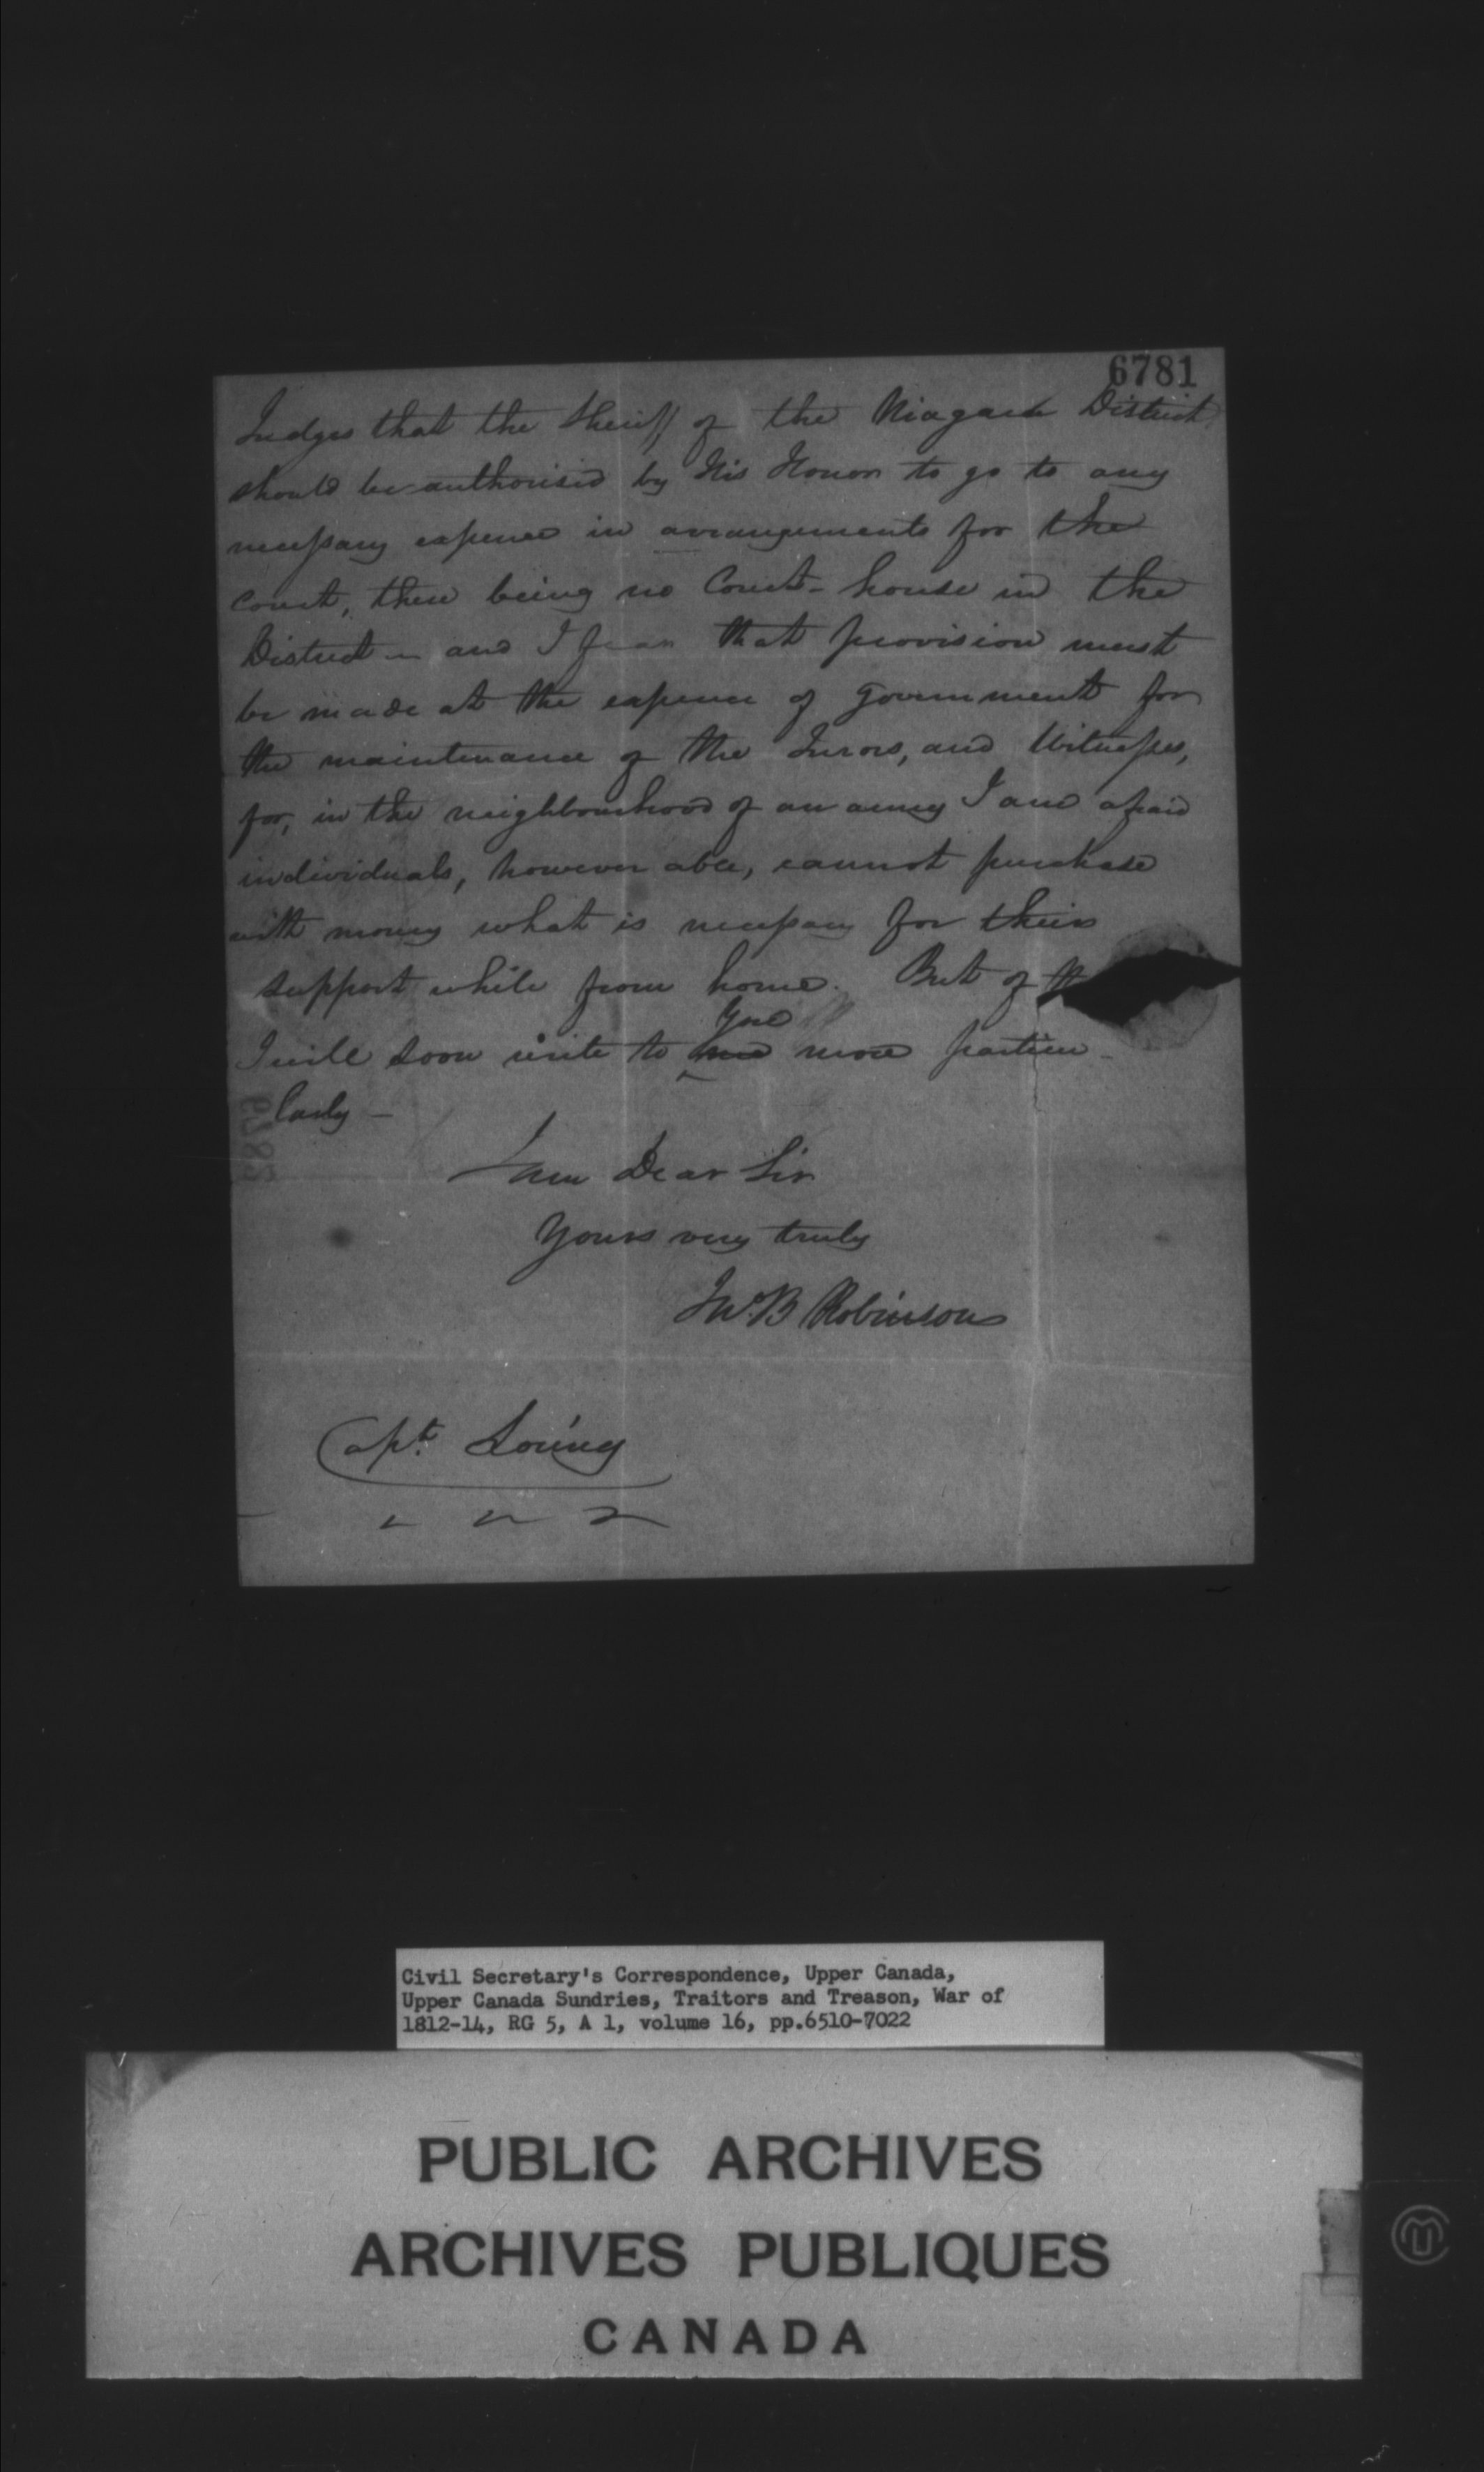 6781
Judges that the Sheriff of the Niagara District
should be authorised by His Honor to go to any
necessary expence in arrangements for the
Court, there being no Court-house in the
District — and I fear that provision must
be made at the expence of Government for
the maintenance of the Jurors, and Witnesses,
for, in the neighbourhood of an army I am afraid
individuals, however able, cannot purchase
with money what is necessary for their
support while from home. But of
you
I will soon write to me more particu-
larly —
I am Dear Sir
Yours very truly
Jno. B Robinson
Capt. Loring
Civil Secretary's Correspondence, Upper Canada,
Upper Canada Sundries, Traitors and Treason, War of
1812-14, RG 5, A 1, volume 16, pp.6510-7022
PUBLIC ARCHIVES
ARCHIVES PUBLIQUES
CANADA